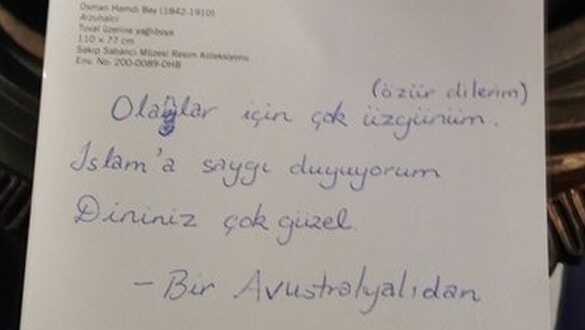 Osman Hamdi Bey (1842-1910)
Arzuhalci
Tuval üzerine yağlıboya
110 x 77 cm
Sakıp Sabancı Müzesi Resim Koleksiyonu
Env. No: 200-0089-OHB
(özür dilerim)
Olaylar için çok üzgünüm.
İslam'a saygı duyuyorum
Dininiz çok güzel.
- Bir Avustralyalıdan